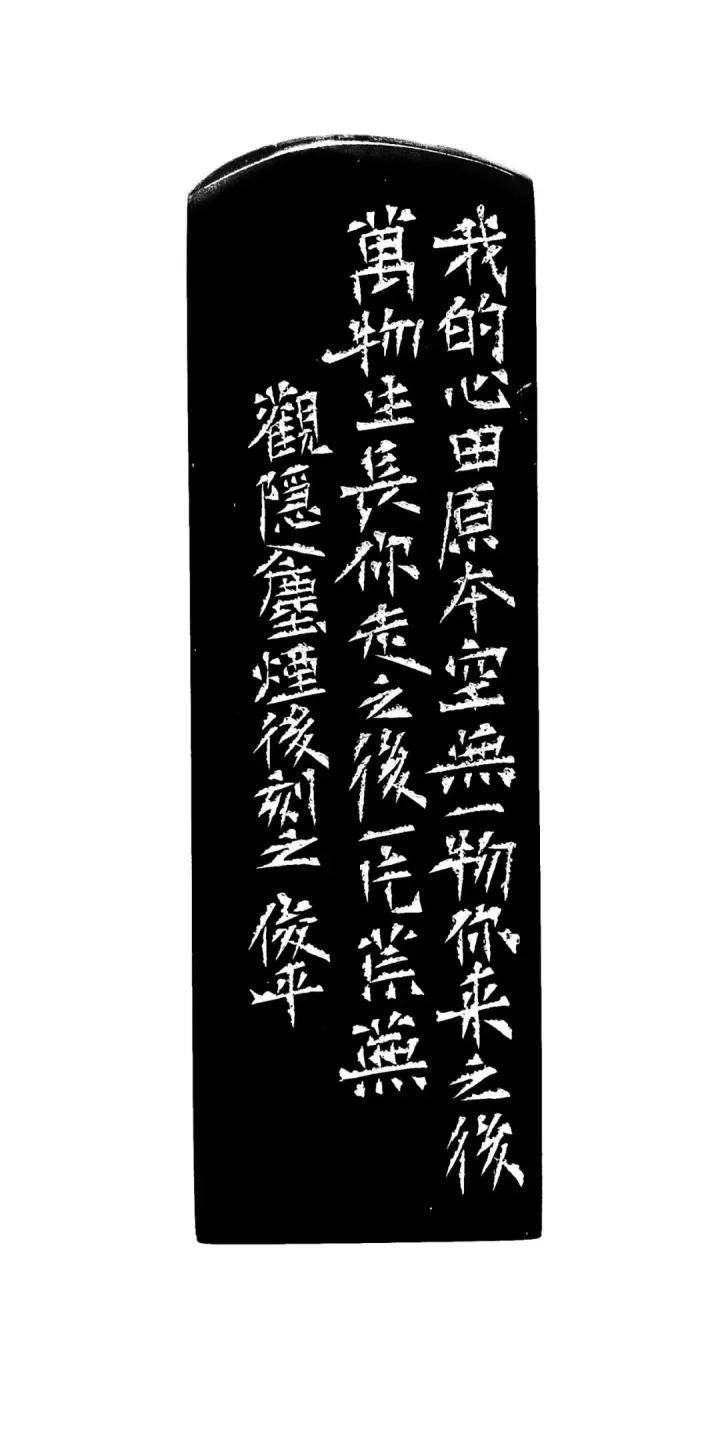 我的心田原本空無一物你来之後
萬物生長你走之後一片荒蕪
觀隱入塵煙後刻之 俊平